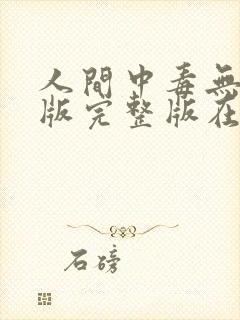 人間中毒無
版完整版在
石磅